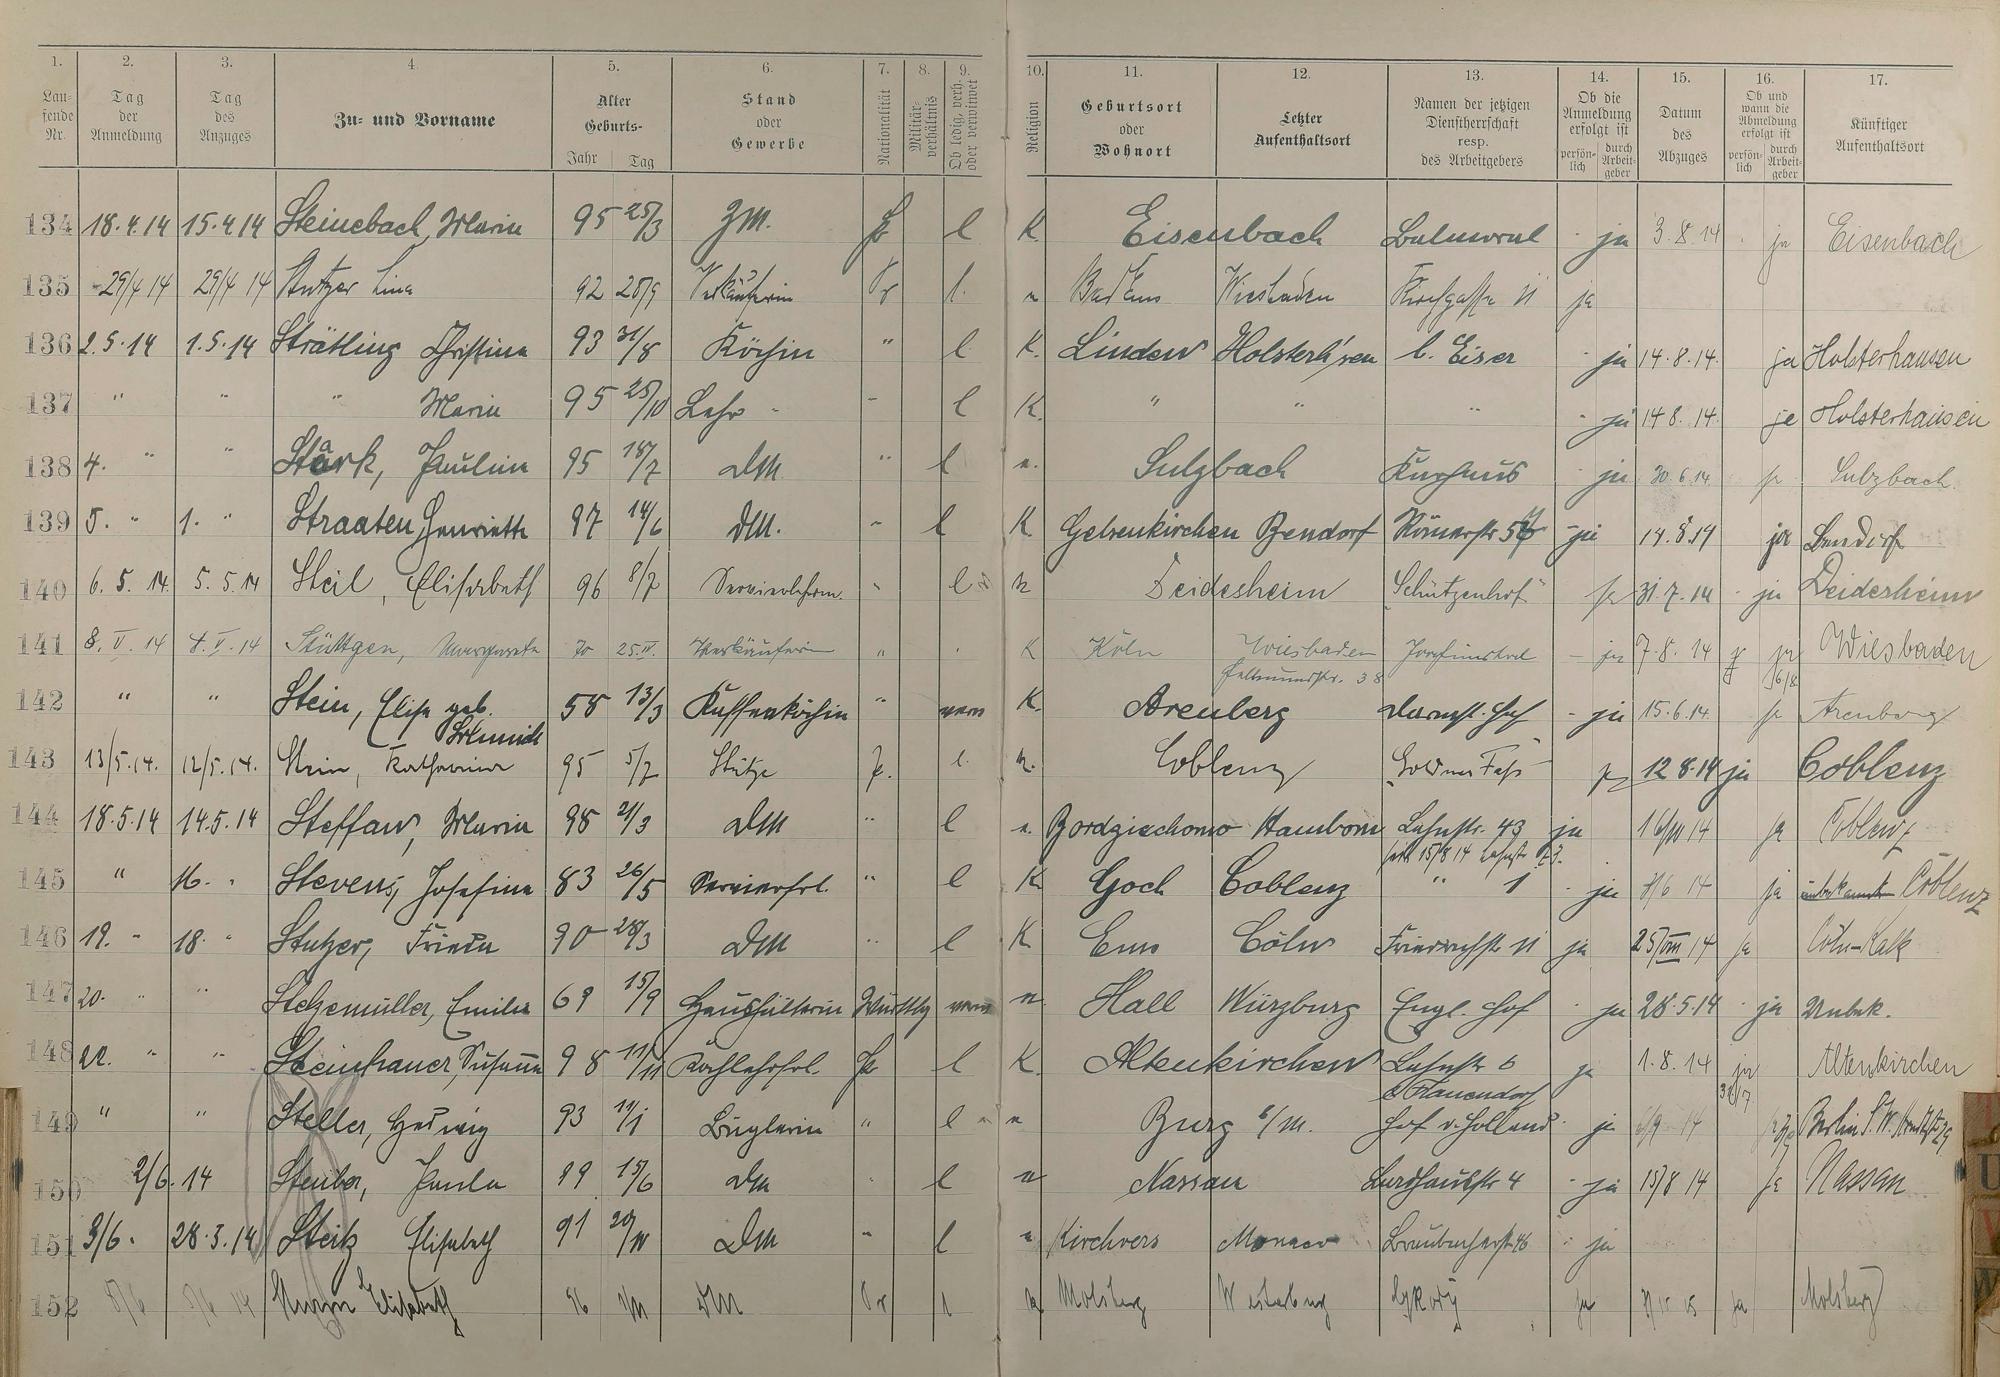 1. 2. 3. 4. 5. 6. 7. 8. 9. 10. 11. 12. 13. 14. 15. 16. 17.
Laufende Nr. Tag der Anmeldung Tag des Anzuges Zu- und Vorname Alter Geburts- Jahr Tag Stand oder Gewerbe Nationalität Militärverhältnis Ob ledig, verh. oder verwitwet Religion Geburtsort oder Wohnort Letzter Aufenthaltsort Namen der jetzigen Dienstherrschaft resp. des Arbeitgebers Ob die Anmeldung erfolgt ist persönlich durch Arbeitgeber Datum des Abzuges Ob und wann die Abmeldung erfolgt ist persönlich durch Arbeitgeber Künftiger Aufenthaltsort
134 18.4.14 15.4.14 Steinebach, Maria 95 25/3 ZM. Pr l K. Eisenbach Balmoral - ja 3.8.14 - ja Eisenbach
135 29/4 14 29/4 14 Stutzer Lina 92 Verkäuferin Pr l. Bad Ems Wiesbaden 11 ja
136 2.5.14 1.5.14 Strätling Christina 93 31/8 Köchin " l K. Linden Holsterh'sen b. Eiser - ja 14.8.14. ja Holsterhausen
137 " " " Maria 95 25/10 Lehr - " l K. " " " - ja 14 8. 14. ja Holsterhausen
138 4. " " Stärk, Paulina 95 18/7 DM " l Sulzbach Kurhaus - ja 30.6.14 Sulzbach
139 5. " 1. " Straaten, Henriette 97 14/6 DM. " l K Gelsenkirchen Bendorf Römerstr - ja 14.8.14 ja Bendorf
140 6. 5. 14. 5. 5. 14 Steil, Elisabeth 96 8/7 " l Deidesheim "Schützenhof" 31.7.14 - ja Deidesheim
141 8. V. 14 V. 14 Stüttgen, Margareta 70 Verkäuferin " K Köln Wiesbaden - ja 7.8.14 Wiesbaden
38
142 " " Stein, Elise geb. 58 13/3 Kaffeeköchin " K. Arenberg Darmst. Hof - ja 15.6.14. Arenberg
Schmidt
143 13/5.14. 12/5.14. Stein, Katharina 95 5/7 Stütze P. l. Coblenz Goldnes Fass 12 8.14 ja Coblenz
144 18.5.14 14.5.14 Steffan, Maria 98 21/3 DM " l Hamborn Lahnstr. 43 ja 14 ja Coblenz
15/8 14
145 " 16. " Stevens, Josefine 83 26/5 Servierfrl. " l K Goch Coblenz " 1 - ja 14 ja unbekannt Coblenz
146 19. " 18. " Stutzer, Frieda 90 28/3 DM " l K Ems Cöln Friedrichstr 11 ja 25/VIII 14 ja Cöln-Kalk
147 20. " " Stelzemüller, Emilie 69 15/9 Haushälterin Württbg Hall Würzburg Engl. Hof - ja 28.5.14 - ja Unbek.
148 22. " " Steinhauer, Susanna 98 11/11 Kochlehrfrl. Pr l K. Altenkirchen Lahnstr 6 ja 1.8.14 ja Altenkirchen
149 " " Steller, Hedwig 93 11/1 Büglerin " l Burg b/M. Hof v. Holland - ja 14 Berlin S.W.
150 2/6.14 Steuber, Paula 99 15/6 DM " l Nassau 4 - ja 15/8 14 ja Nassau
151 3/6. 28.3.14 Steitz Elisabeth 91 DM " l Kirchvers Monaco 46 ja
152 14 Elisabeth 96 DM Pr l Molsberg Westerburg ja Molsberg